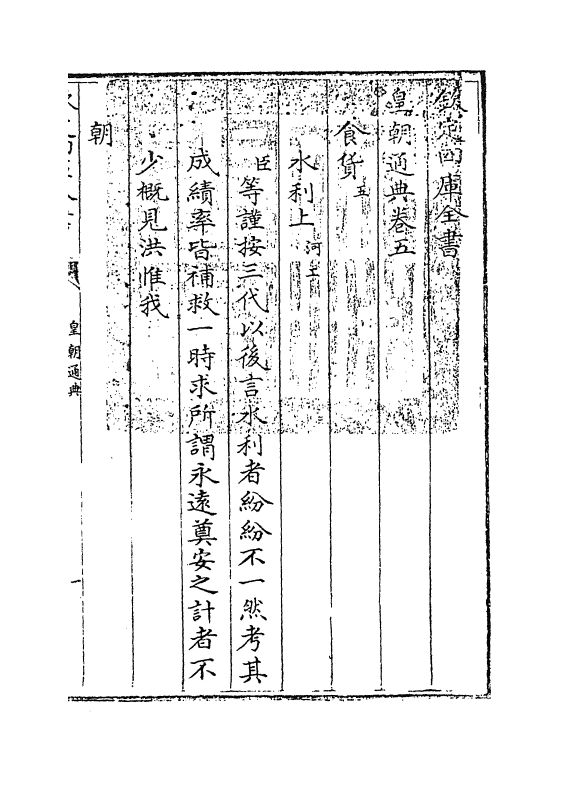 欽定四庫全書
皇朝通典卷五
食貨五
水利上河工
臣等謹按三代以後言水利者紛紛不一然考其
成績率皆補救一時求所謂永遠奠安之計者不
少概見洪惟我
朝
皇朝通典
一